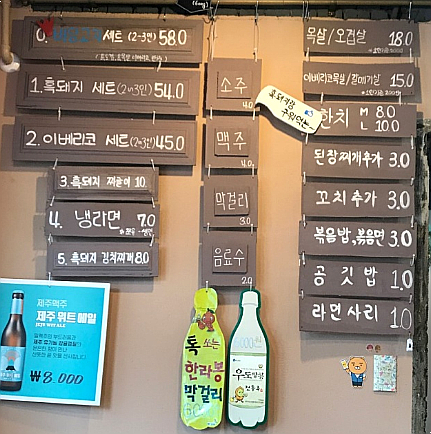 0. 세트 (2~3인) 58.0
1. 흑돼지 세트 (2~3인) 54.0
2. 이베리코 세트 (2~3인) 45.0
3. 흑돼지 짜글이 10.
4. 냉라면 7.0
5. 흑돼지 김치찌개 8.0
소주
4.0
맥주
4.0
막걸리
3.0
음료수
2.0
흑돼지랑
구워먹는
목살/오겹살 18.0
이베리코목살/갈매기살 15.0
한치 M 8.0
L 10.0
된장찌개추가 3.0
꼬치추가 3.0
볶음밥,볶음면 3.0
공깃밥 1.0
라면사리 1.0
제주맥주
제주 위트 에일
JEJU WIT ALE
₩8,000
톡 쏘는
한라봉
막걸리
우도땅콩